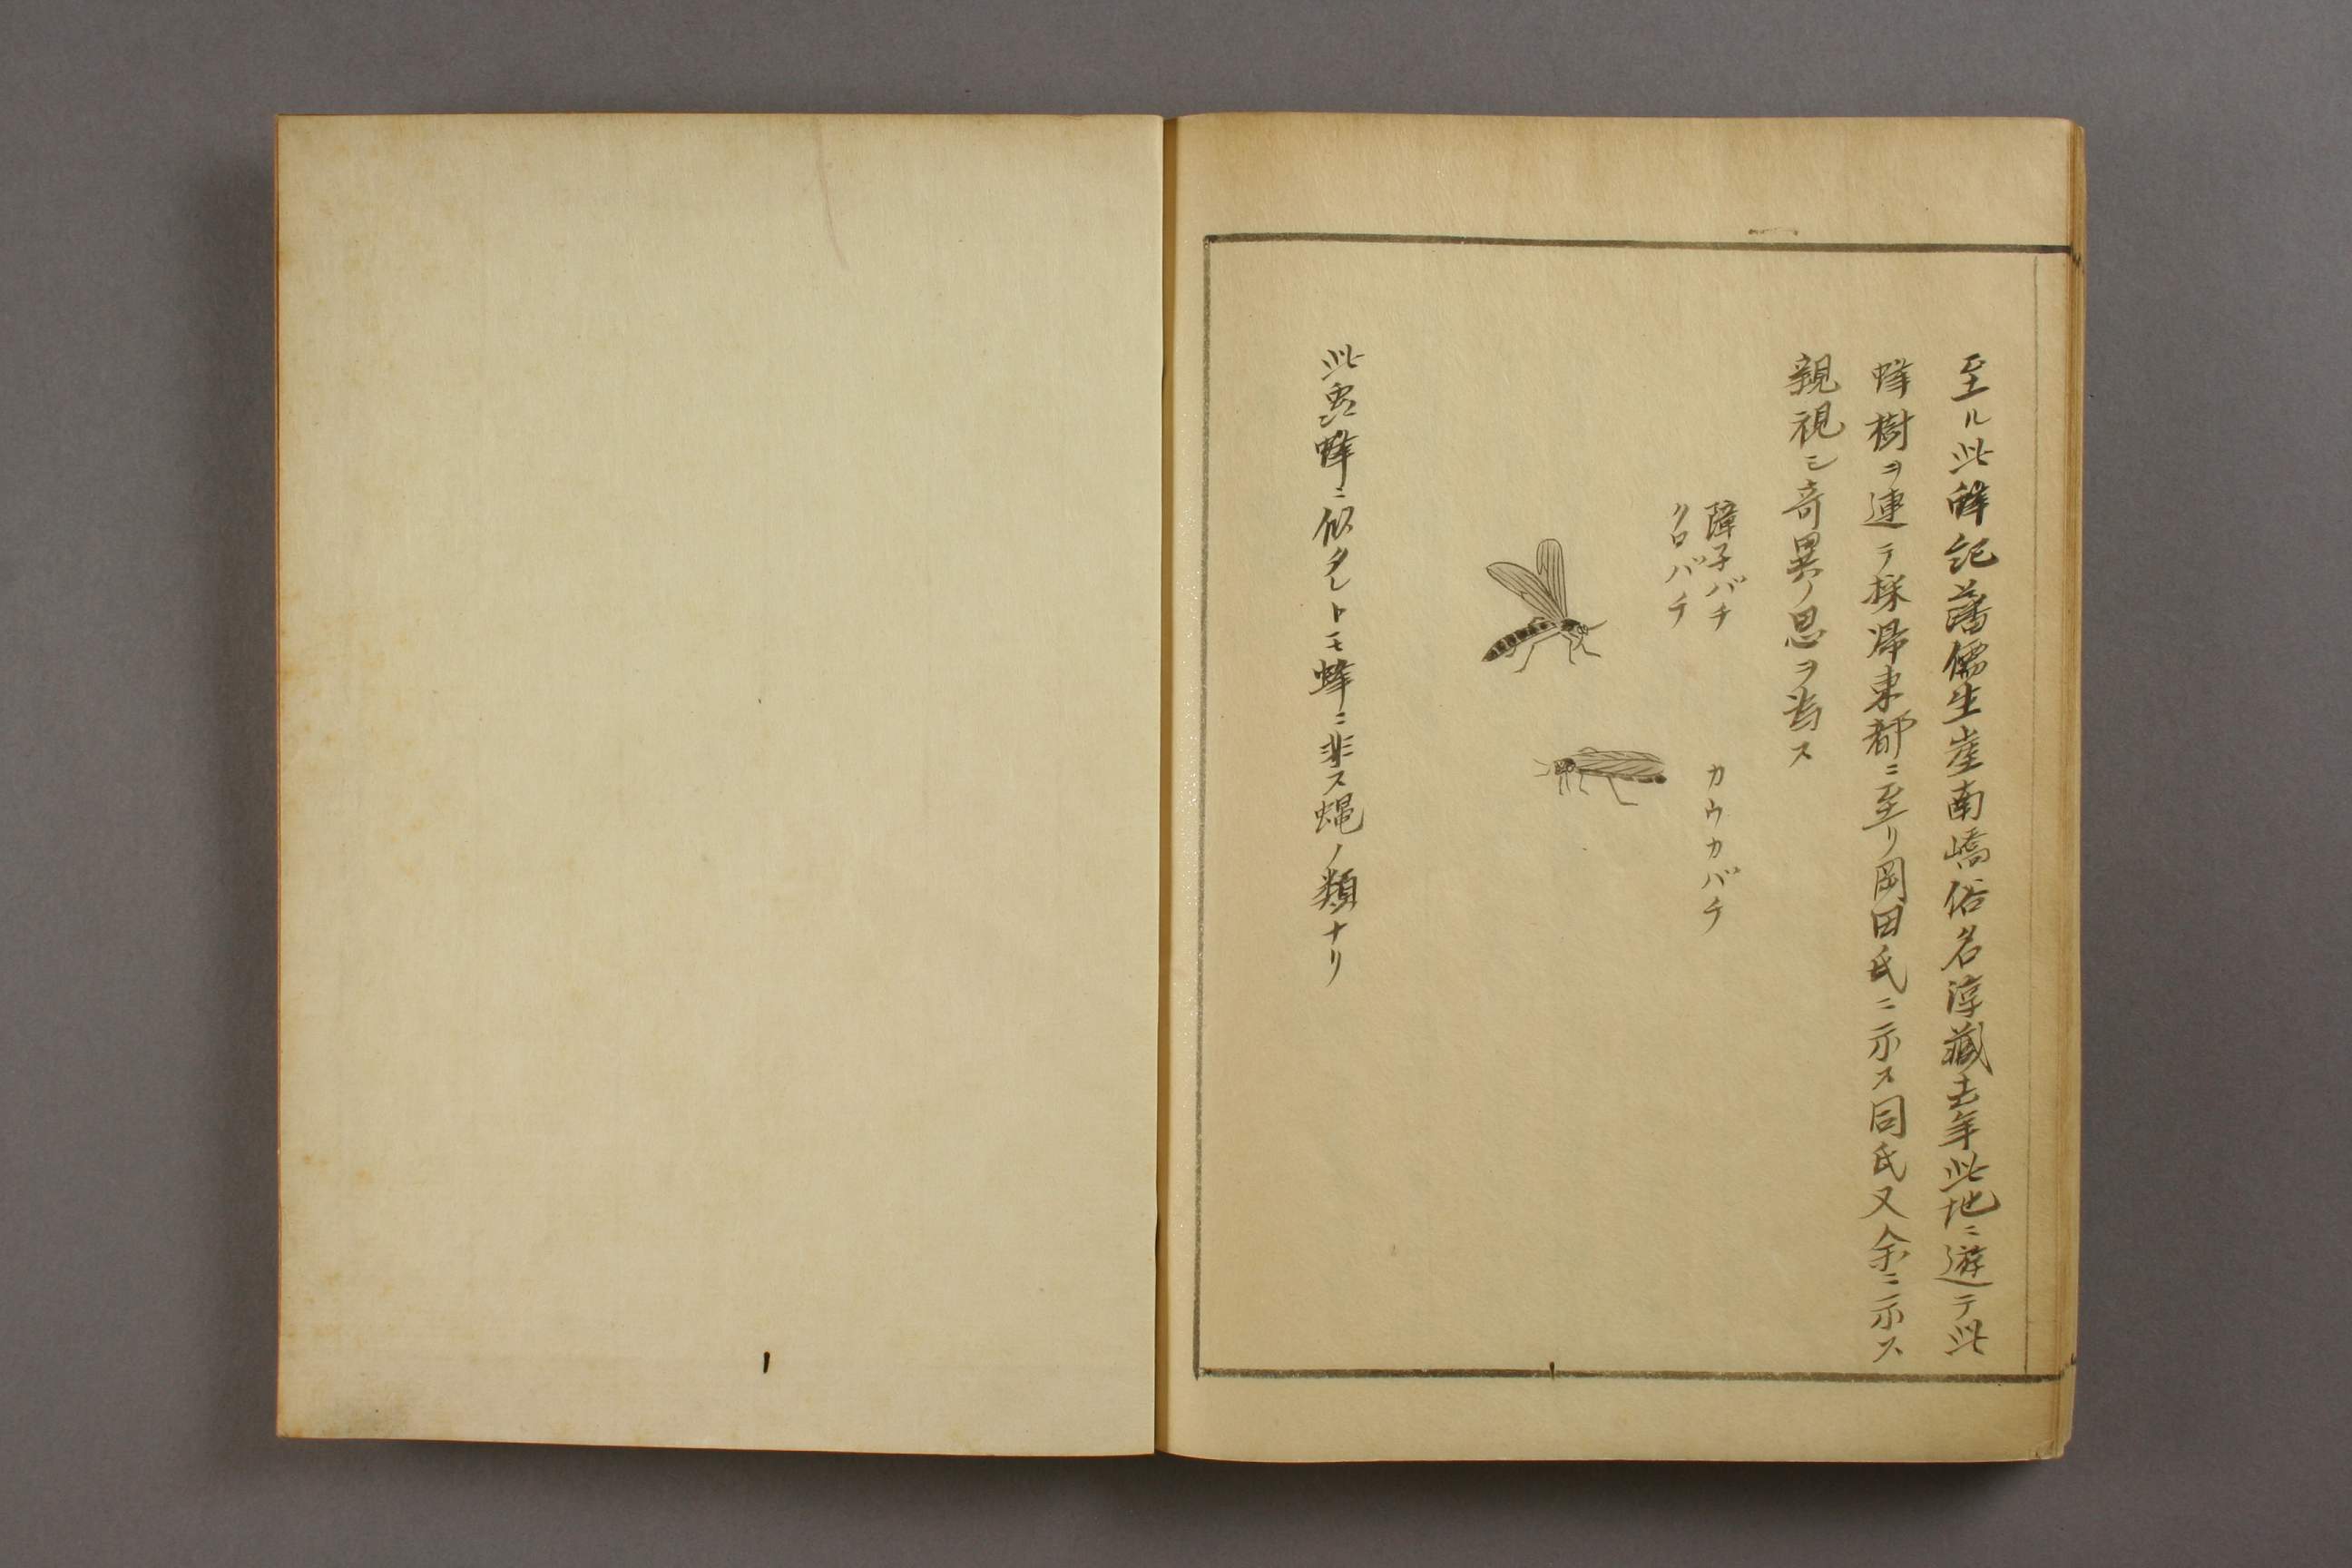 至ル此蜂記藩儒生崖南嶠俗名淳藏去年此地ニ遊テ此
蜂樹ヲ連テ採帰東都ニ至リ岡田氏ニ示ス同氏又余ニ示ス
親視シ奇異ノ思ヲ為ス
障子バチ
クロバチ
カウカバチ
此蟲蜂ニ似タレトモ蜂ニ非ス蝿ノ類ナリ